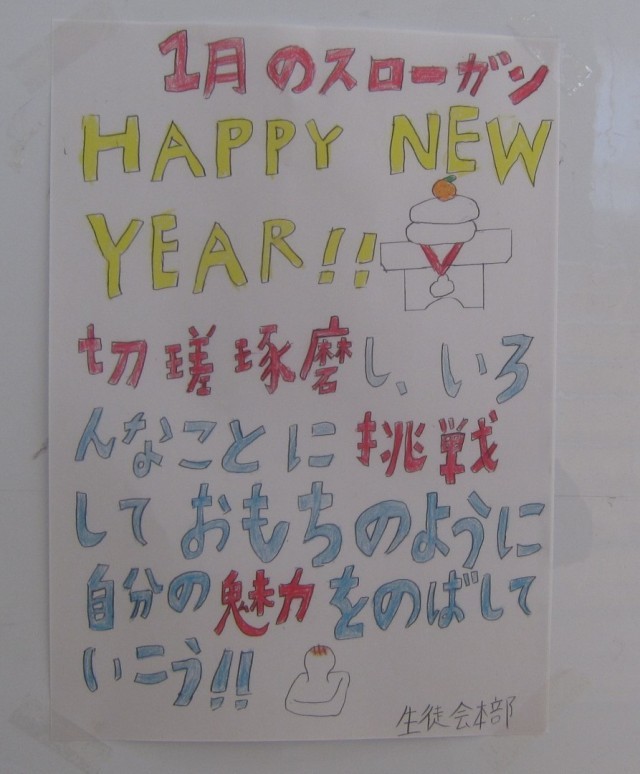 1月のスローガン
HAPPY NEW
YEAR!!
切瑳琢磨し、いろ
んなことに挑戦
しておもちのように
自分の魅力をのばして
いこう!!
生徒会本部